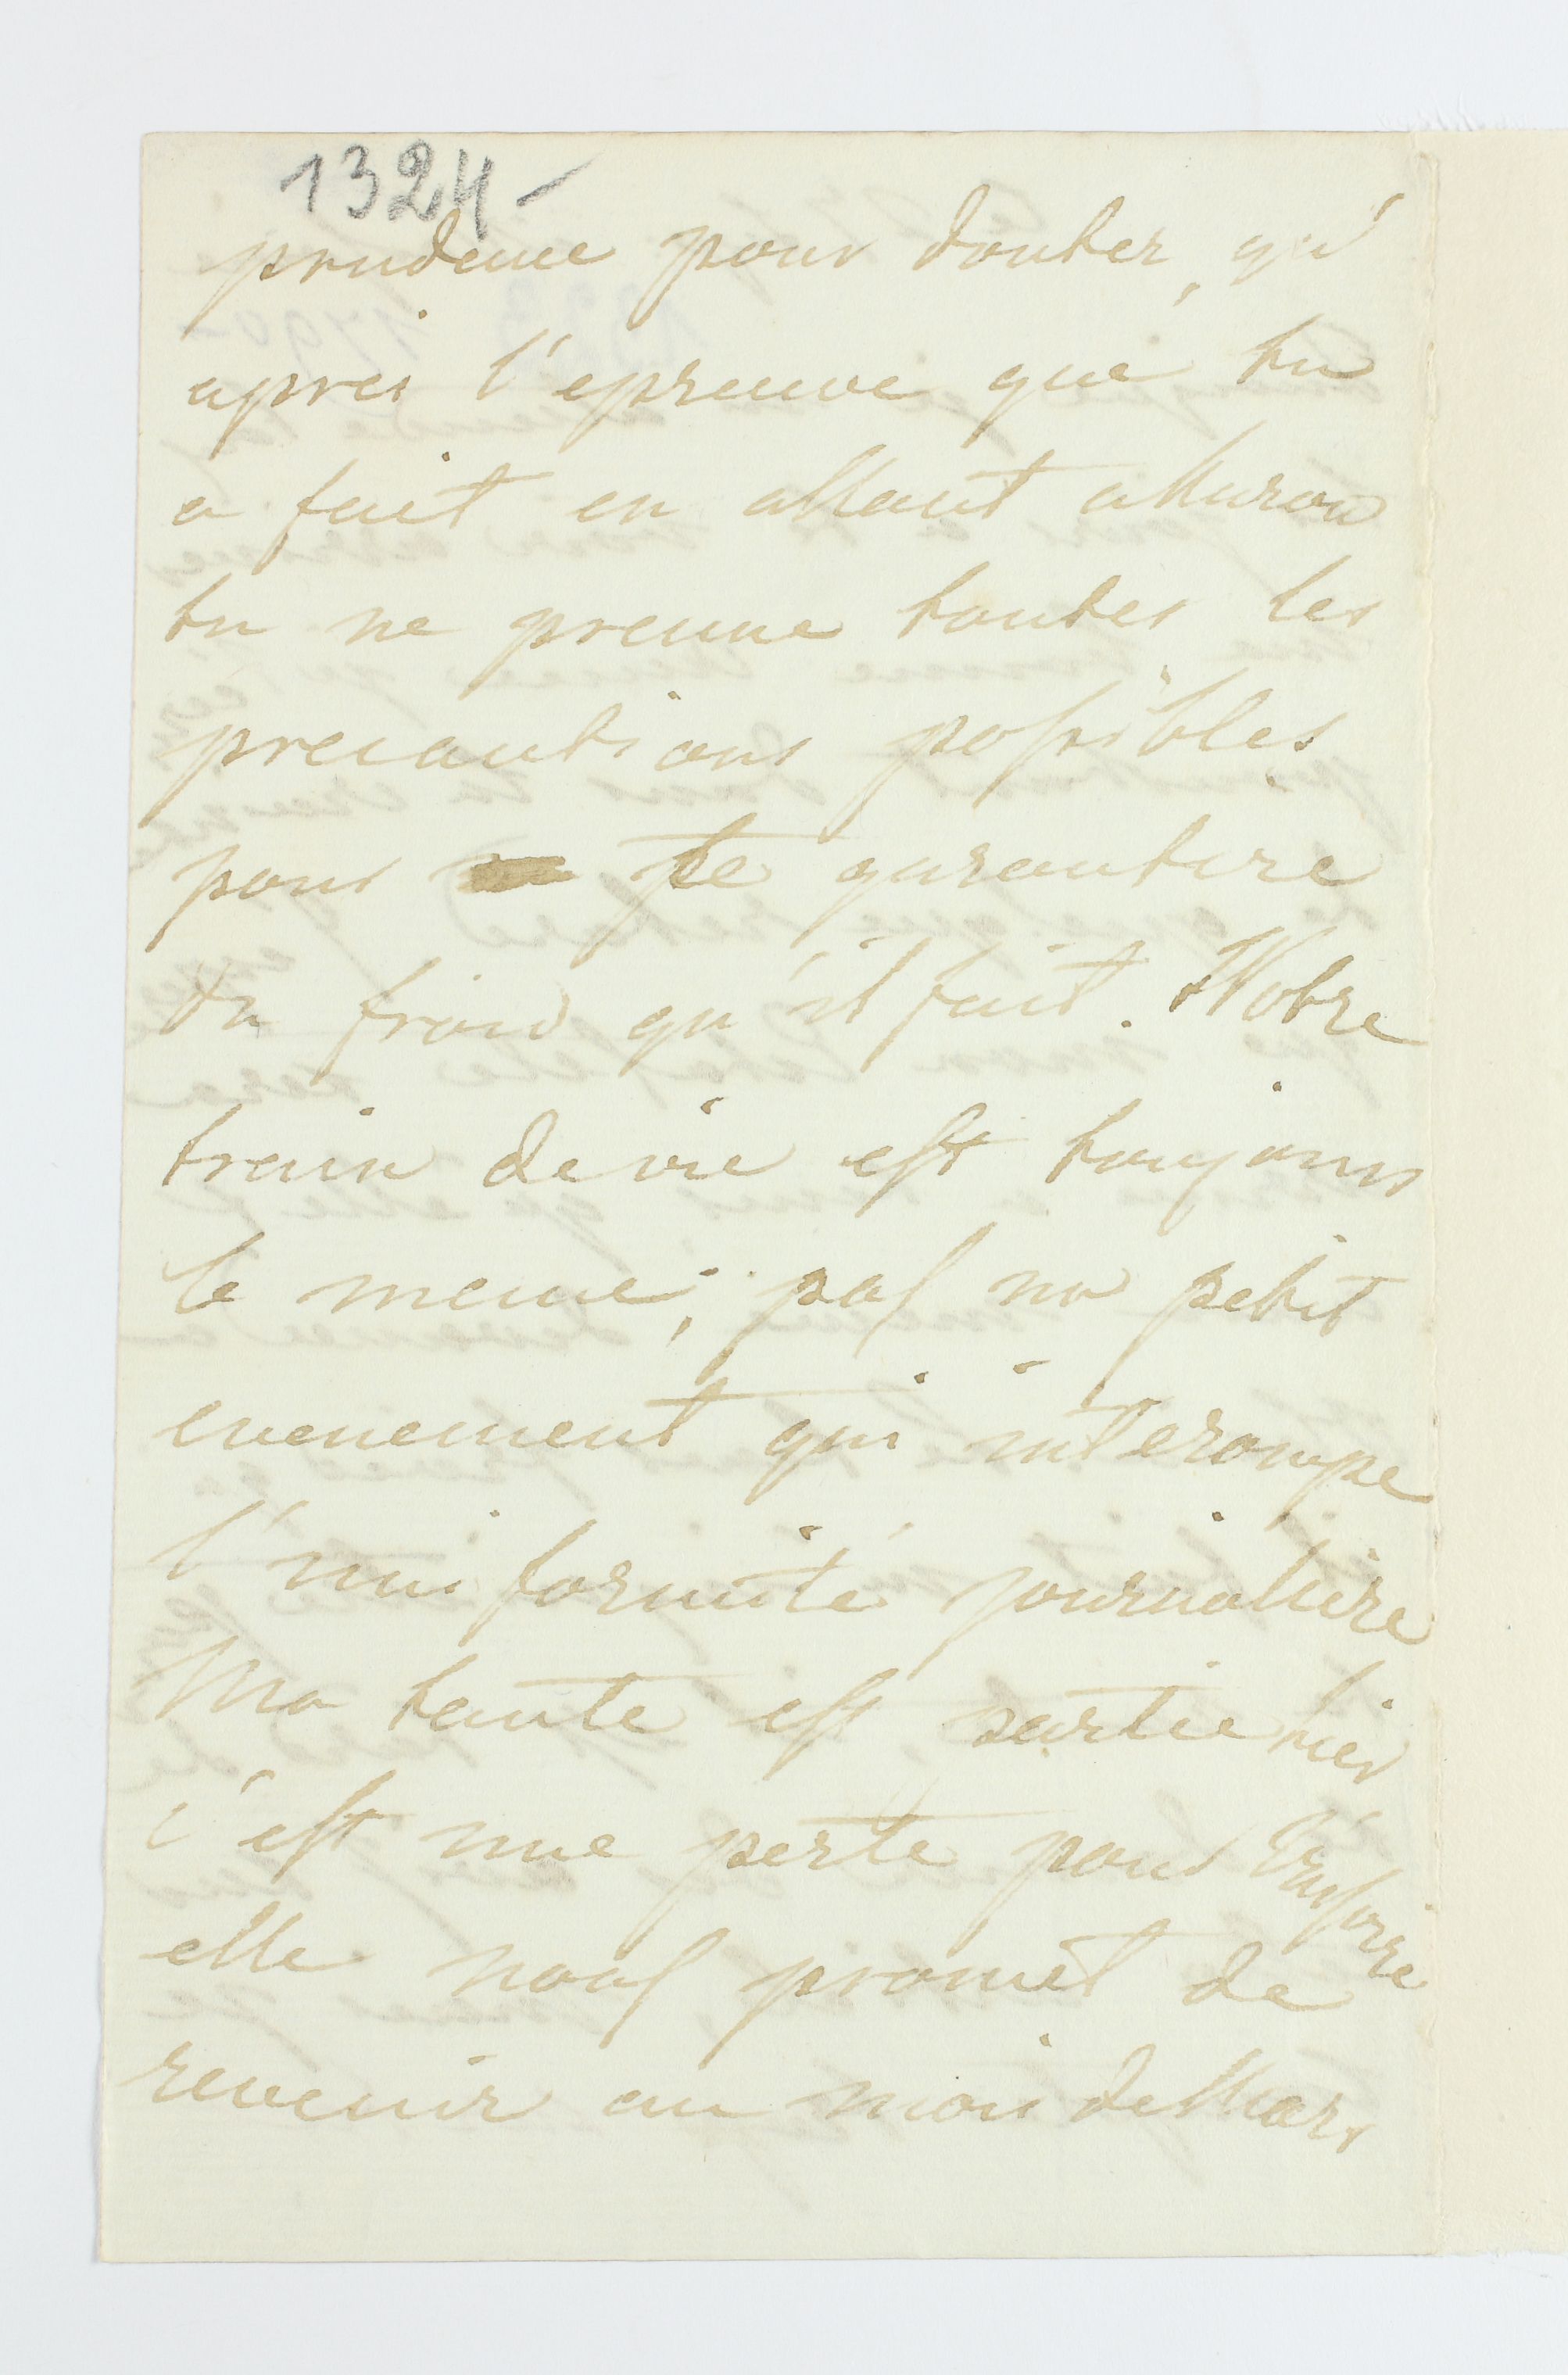 1324-
prudence pour douter, qu'
apres l'epreuve que tu
a fait en allant a Murow
tu ne prenne toutes les
precautions possibles
pour te garantire
du froid qu'il fait. Notre
train de vie est toujours
le meme; pas un petit
evenement qui interompe
l'uniformité journallire
Ma tante est sartie hier
c'est une perte pour
elle nous promet de
revenir au mois de Mars